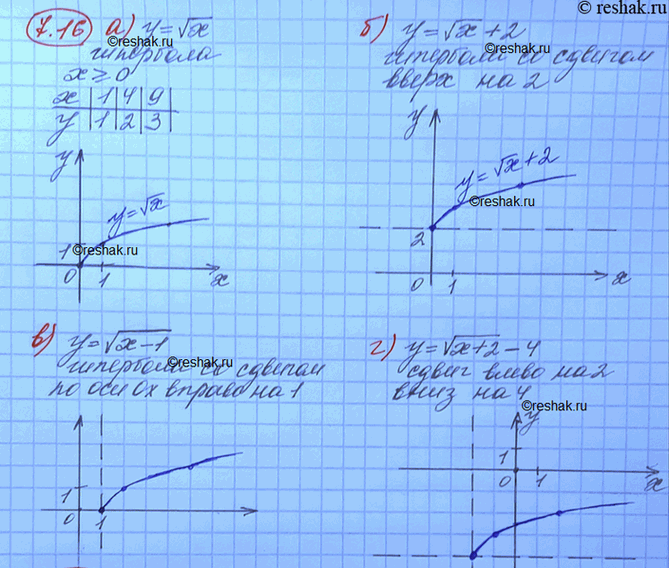 © reshak.ru
7.16 а) y=√x
гипербола
x ≥ 0
x | 1 | 4 | 9 |
y | 1 | 2 | 3 |
y
y=√x
1
0 1 x
б) y=√x+2
гипербола со сдвигом
вверх на 2
y
y=√x+2
2
0 1 x
в) y=√x-1
гипербола со сдвигом
по оси Ox вправо на 1
1
0 1
г) y=√x+2-4
сдвиг влево на 2
вниз на 4
y
1
0 1 x
© reshak.ru
© reshak.ru
© reshak.ru
© reshak.ru
© reshak.ru
© reshak.ru
© reshak.ru